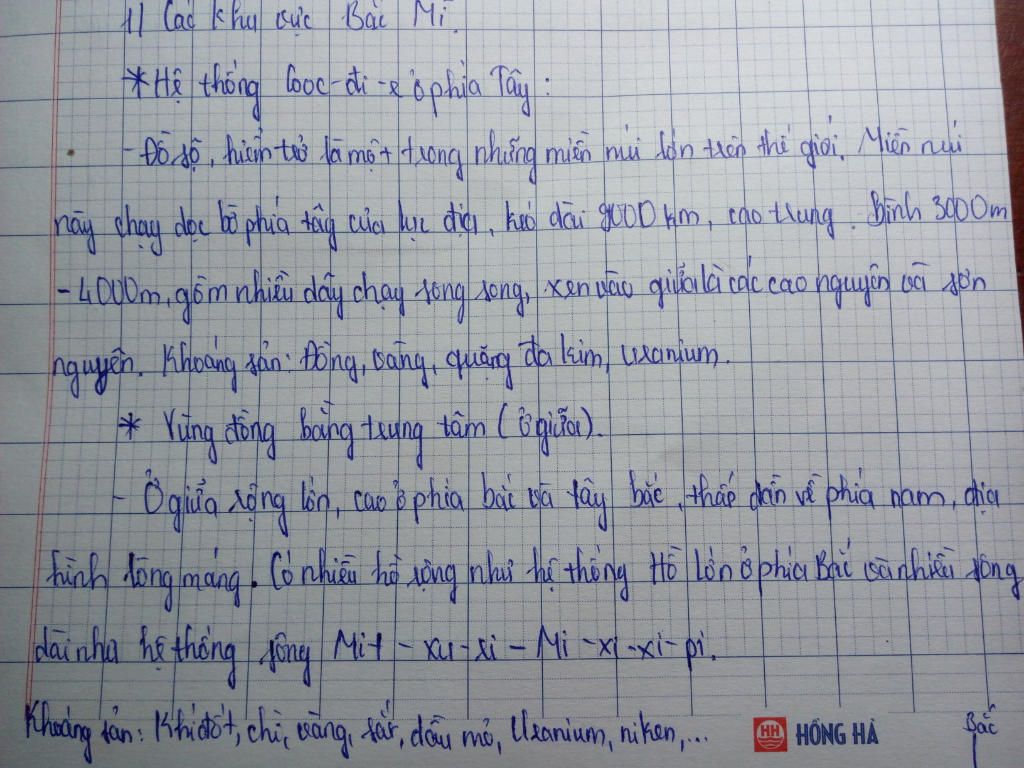 1) Các khu vực Bắc Mĩ.
* Hệ thống Cooc-đi-e ở phía Tây:
- Đồ sộ, hiểm trở là một trong những miền núi lớn trên thế giới. Miền núi
này chạy dọc bờ phía tây của lục địa, kéo dài 9000 km, cao trung bình 3000m
- 4000m, gồm nhiều dãy chạy song song, xen vào giữa là các cao nguyên và sơn
nguyên. Khoáng sản: Đồng, vàng, quặng đa kim, uranium.
* Vùng đồng bằng trung tâm (Ở giữa).
- Ở giữa rộng lớn, cao ở phía bắc và tây bắc, thấp dần về phía nam, địa
hình lòng máng. Có nhiều hồ rộng như hệ thống Hồ lớn ở phía Bắc và nhiều sông
dài nha hệ thống sông Mit - xu - xi - Mi - xi - xi - pi.
Khoáng sản: Khí đốt, chì, vàng, sắt, dầu mỏ, Uranium, niken,...
HH HỒNG HÀ
Bắc